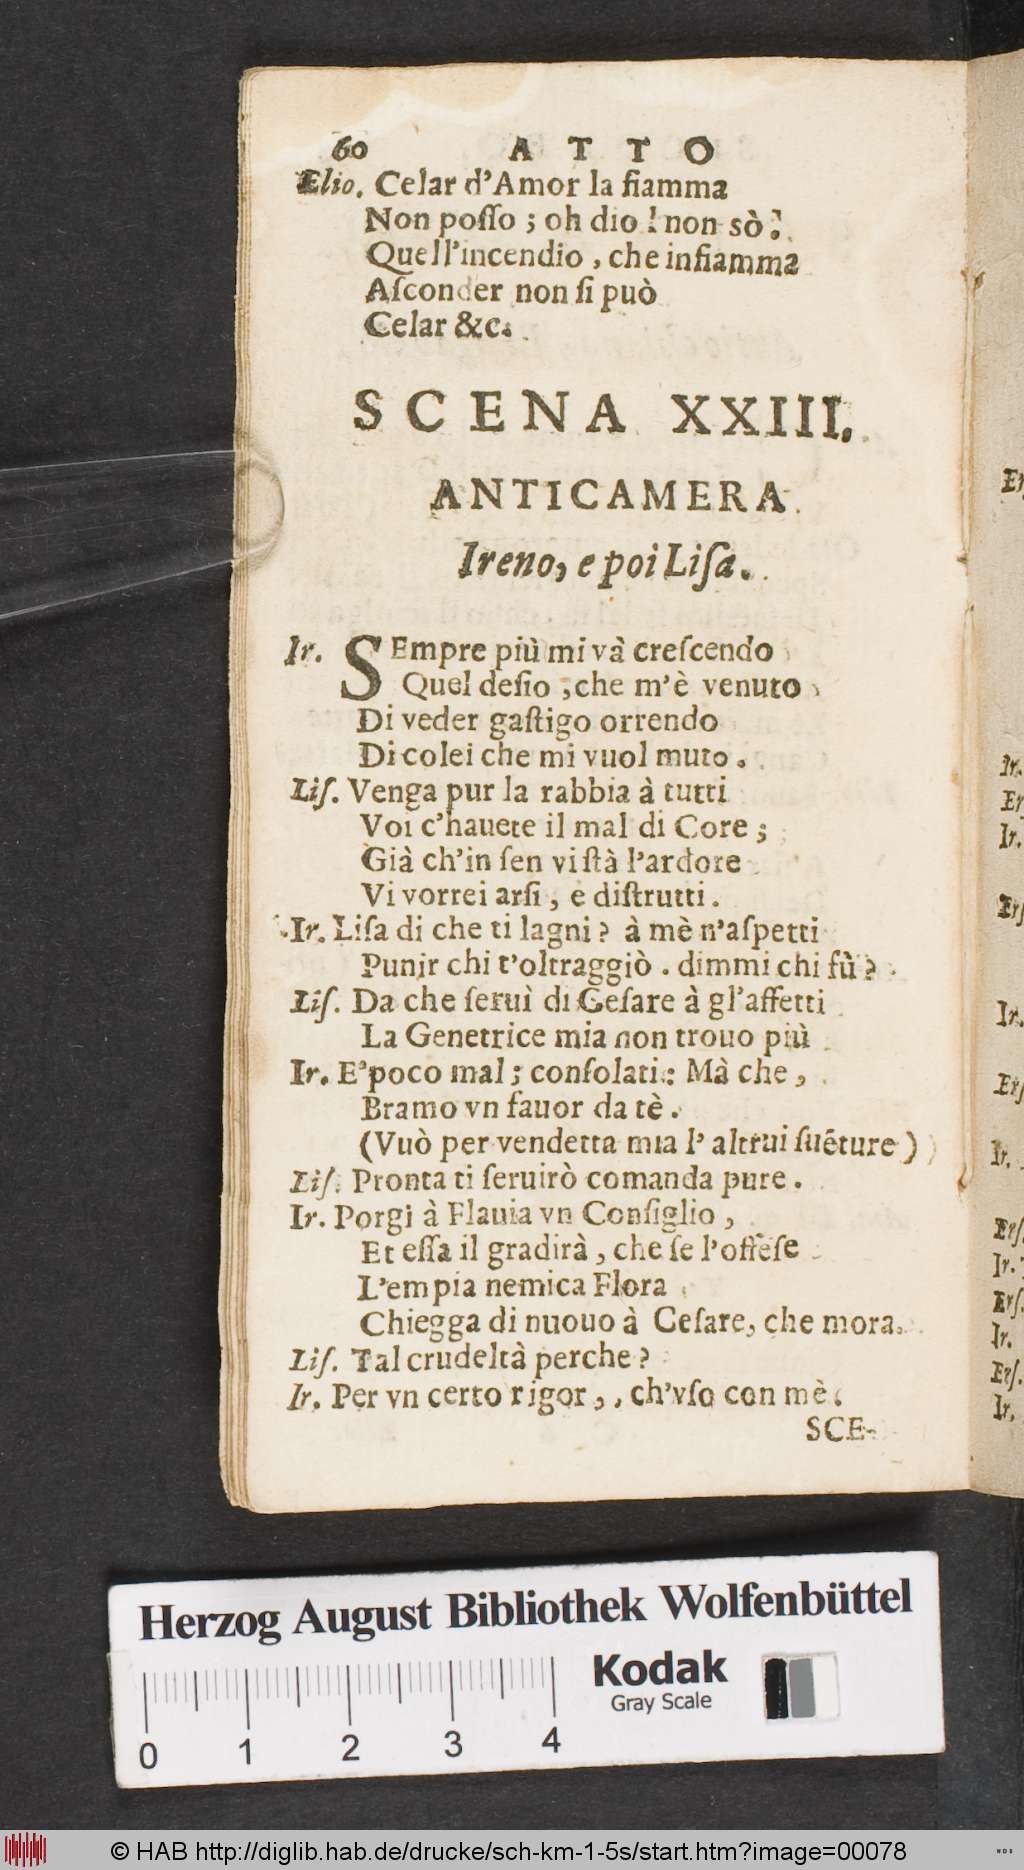 60 ATTO
Elio. Celar d'Amor la fiamma
Non poſſo ; oh dio ! non sò !
Quell'incendio , che infiamma
Aſconder non ſi può
Celar &c.
SCENA XXIII.
ANTICAMERA
Ireno, e poi Liſa.
Ir. SEmpre più mi và creſcendo
Quel deſio , che m'è venuto
Di veder gaſtigo orrendo
Di colei che mi vuol muto .
Liſ. Venga pur la rabbia à tutti
Voi c'hauete il mal di Core ;
Già ch'in ſen vi ſtà l'ardore
Vi vorrei arſi , e diſtrutti .
Ir. Liſa di che ti lagni ? à mè n'aſpetti
Punir chi t'oltraggiò . dimmi chi fù ?
Liſ. Da che ſeruì di Ceſare à gl'affetti
La Genetrice mia non trouo più
Ir. E' poco mal ; conſolati : Mà che ,
Bramo vn fauor da tè .
(Vuò per vendetta mia l' altrui ſuẽture )
Liſ. Pronta ti ſeruirò comanda pure .
Ir. Porgi à Flauia vn Conſiglio ,
Et eſſa il gradirà , che ſe l'offeſe
L'empia nemica Flora
Chiegga di nuouo à Ceſare, che mora.
Liſ. Tal crudeltà perche ?
Ir. Per vn certo rigor , , ch'vſo con mè .
SCE-
Er
Ir.
Er
Ir.
Erſ
Ir.
Erſ
Ir.
Erſ.
Ir.
Erſ.
Ir.
Erſ.
Ir.
Herzog August Bibliothek Wolfenbüttel
Kodak
Gray Scale
0 1 2 3 4
© HAB http://diglib.hab.de/drucke/sch-km-1-5s/start.htm?image=00078